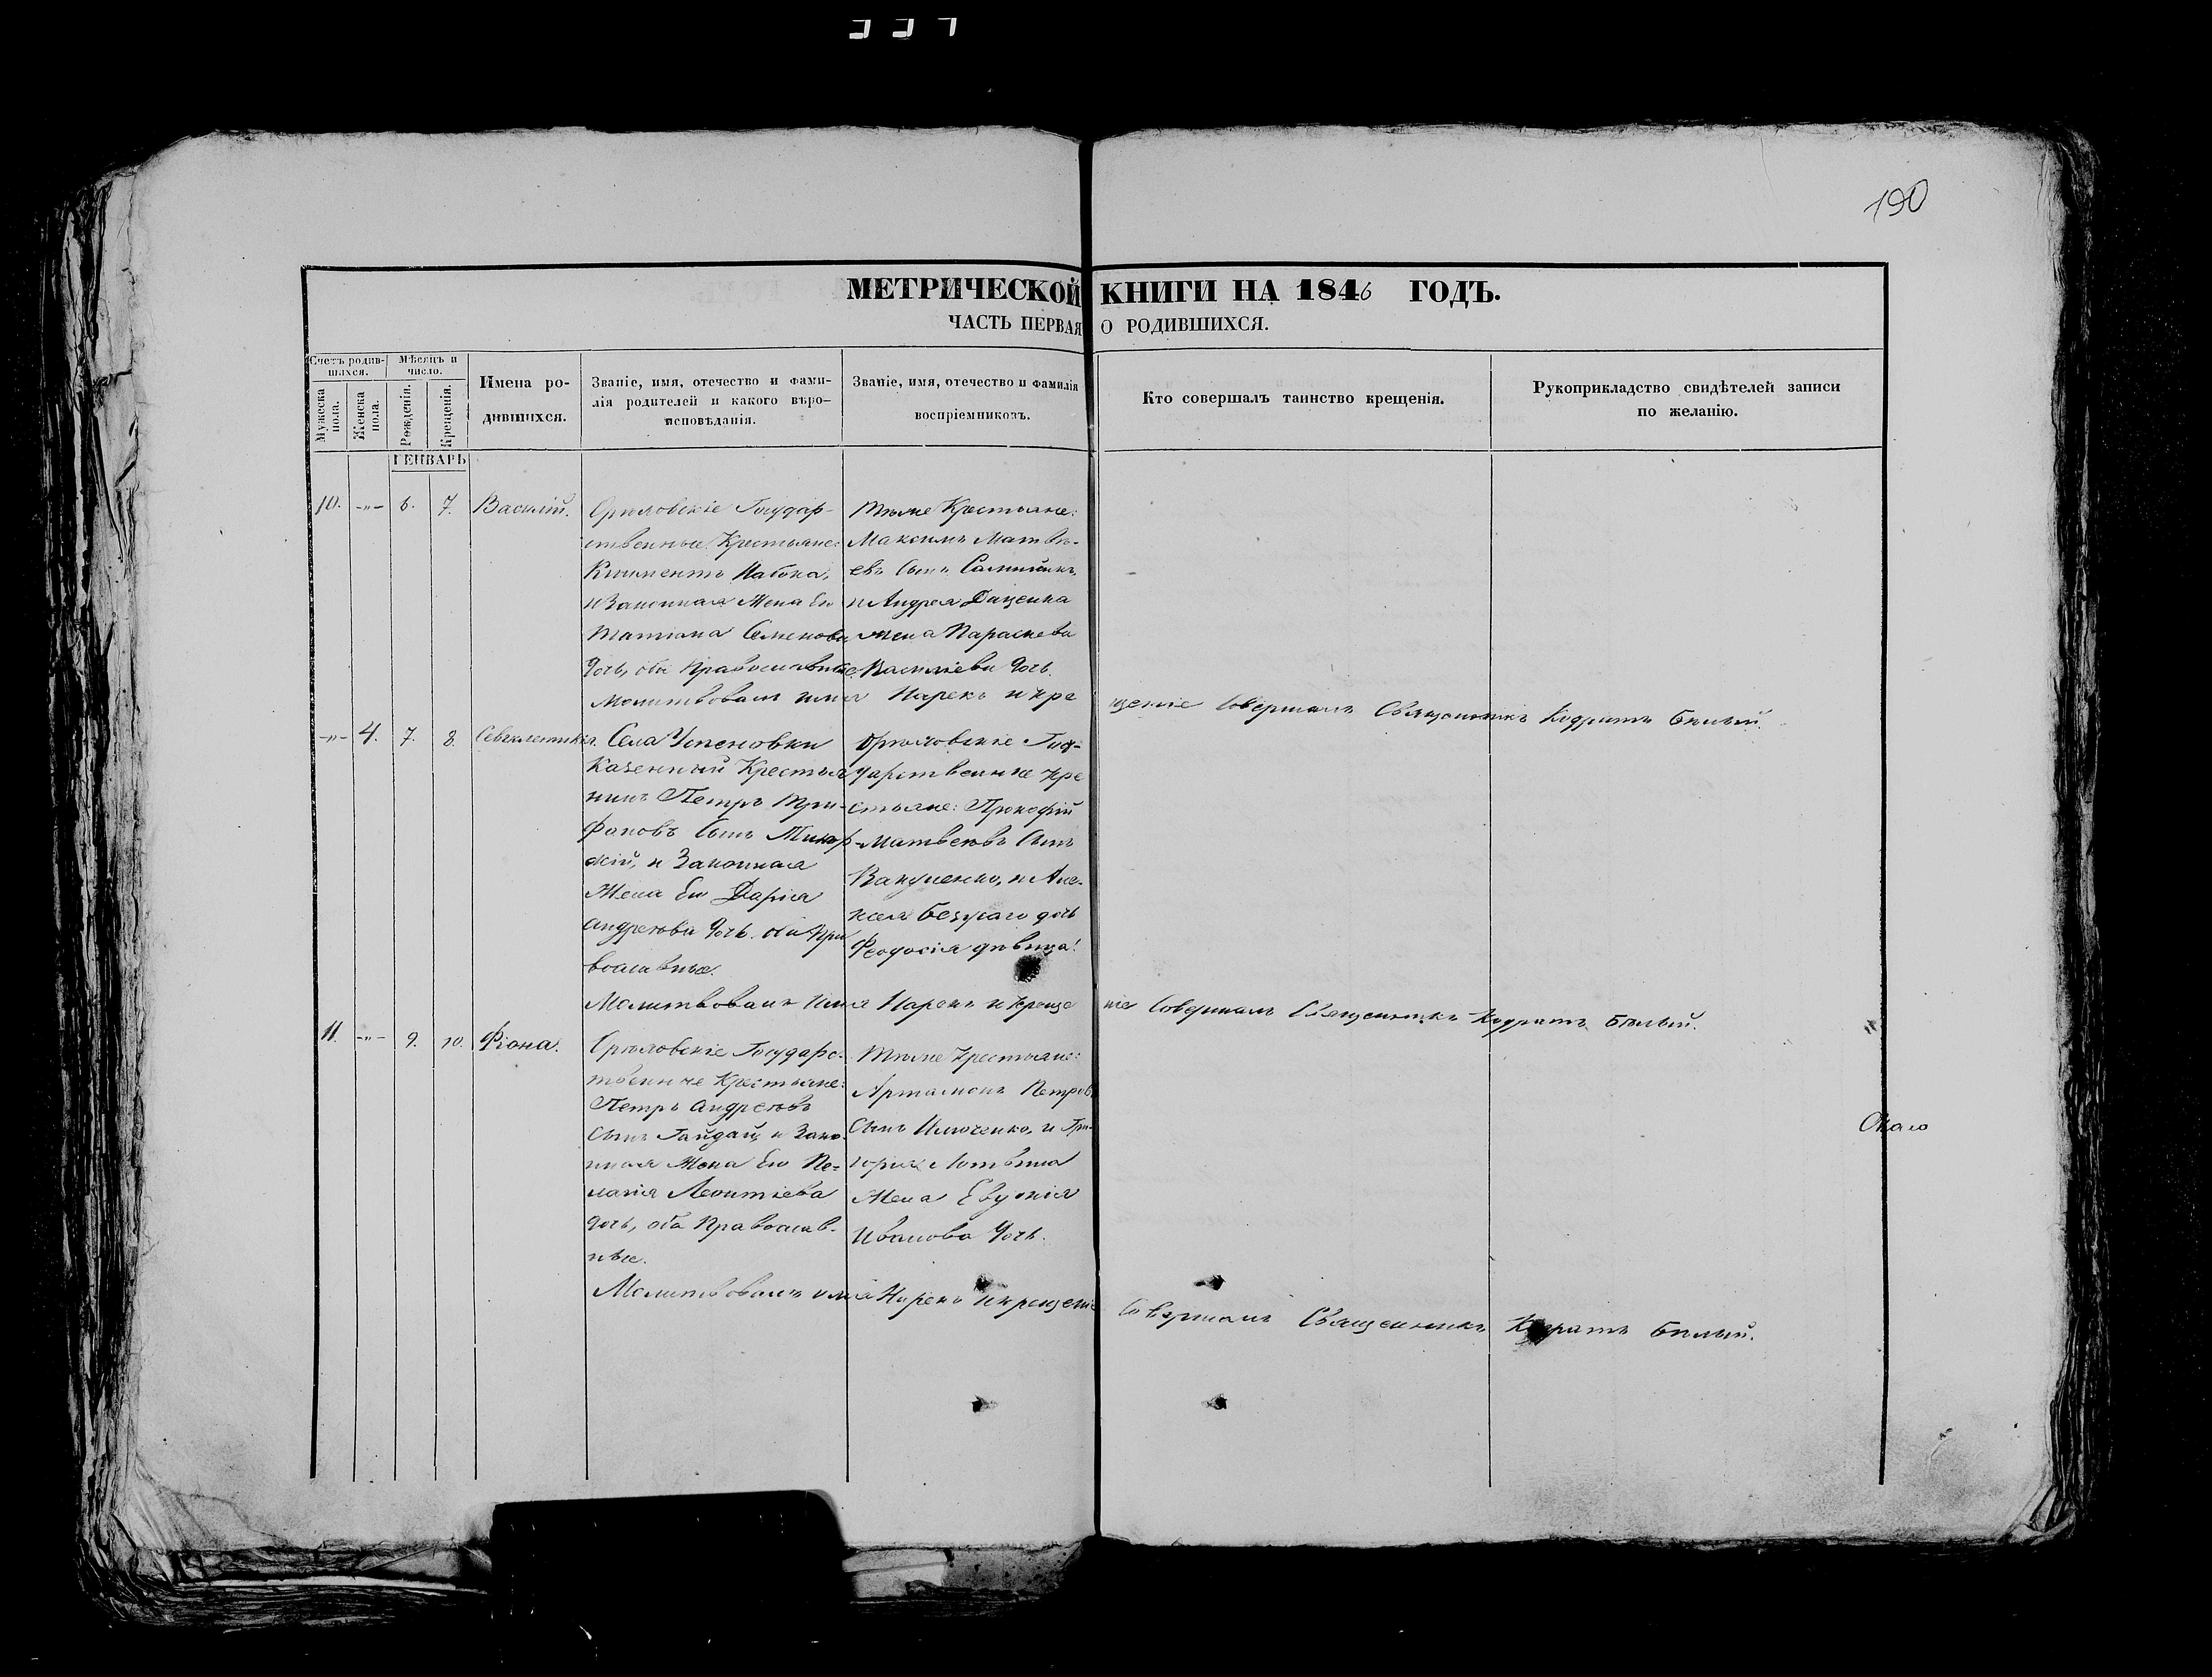 190
МЕТРИЧЕСКОЙ КНИГИ НА 1846 ГОДЪ.
ЧАСТЬ ПЕРВАЯ О РОДИВШИХСЯ.
Счетъ родив-
шихся.
Мужеска пола.
Женска пола.
Мѣсяцъ и
число.
Рожденія.
Крещенія.
Имена ро-
дившихся.
Званіе, имя, отечество и фами-
лія родителей и какого вѣро-
исповѣданія.
Званіе, имя, отечество и фамилія
воспріемниковъ.
Кто совершалъ таинство крещенія.
Рукоприкладство свидѣтелей записи
по желанію.
ГЕНВАРЬ
10. -„- 6. 7. Василій.
Орѣловскіе Государ-
ственные Крестьяне:
Климентъ Набока,
и Законная Жена Ею
Татіана Семенова
Дочь, оба Православные.
Тѣже Крестьяне:
Максимъ Матвѣ-
евъ Сынъ
и Андрея Даценка
жена Параскева
Василіева Дочь.
Молитвовалъ имя Нарекъ и кре щеніе Совершалъ Священникъ Кодратъ Бѣлый.
-„- 4. 7. 8.
Села Успеновки
Казенный Крестья
нинъ Петръ Три-
фановъ Сынъ
и Законная
Жена Ею Дарія
Андреева Дочь. оба Пра
вославные.
Орѣловскіе Госу-
дарственные кре
стьяне: Прокофій
Матвеевъ Сынъ
Вакуленко, и Але-
ксея Безуглаго дочь
Феодосія дѣвица!
Молитвовалъ Имя Нарекъ и креще ніе Совершалъ Священникъ Кодратъ Бѣлый.
11. -„- 9. 10. Фіона.
Орѣловскіе Государс-
твенные Крестьяне:
Петръ Андреевъ
Сынъ Гайдай, и Зако-
нная Жена Ею Пе-
лагія Леонтіева
Дочь, оба Православ-
ные.
Тѣже крестьяне:
Артамонъ Петровъ
Сынъ Ильченко, и Гри-
горія Литвина
Жена Евдокія
Иванова Дочь.
Молитвовалъ имя Нарекъ и крещеніе Совершалъ Священникъ Кодратъ Бѣлый.